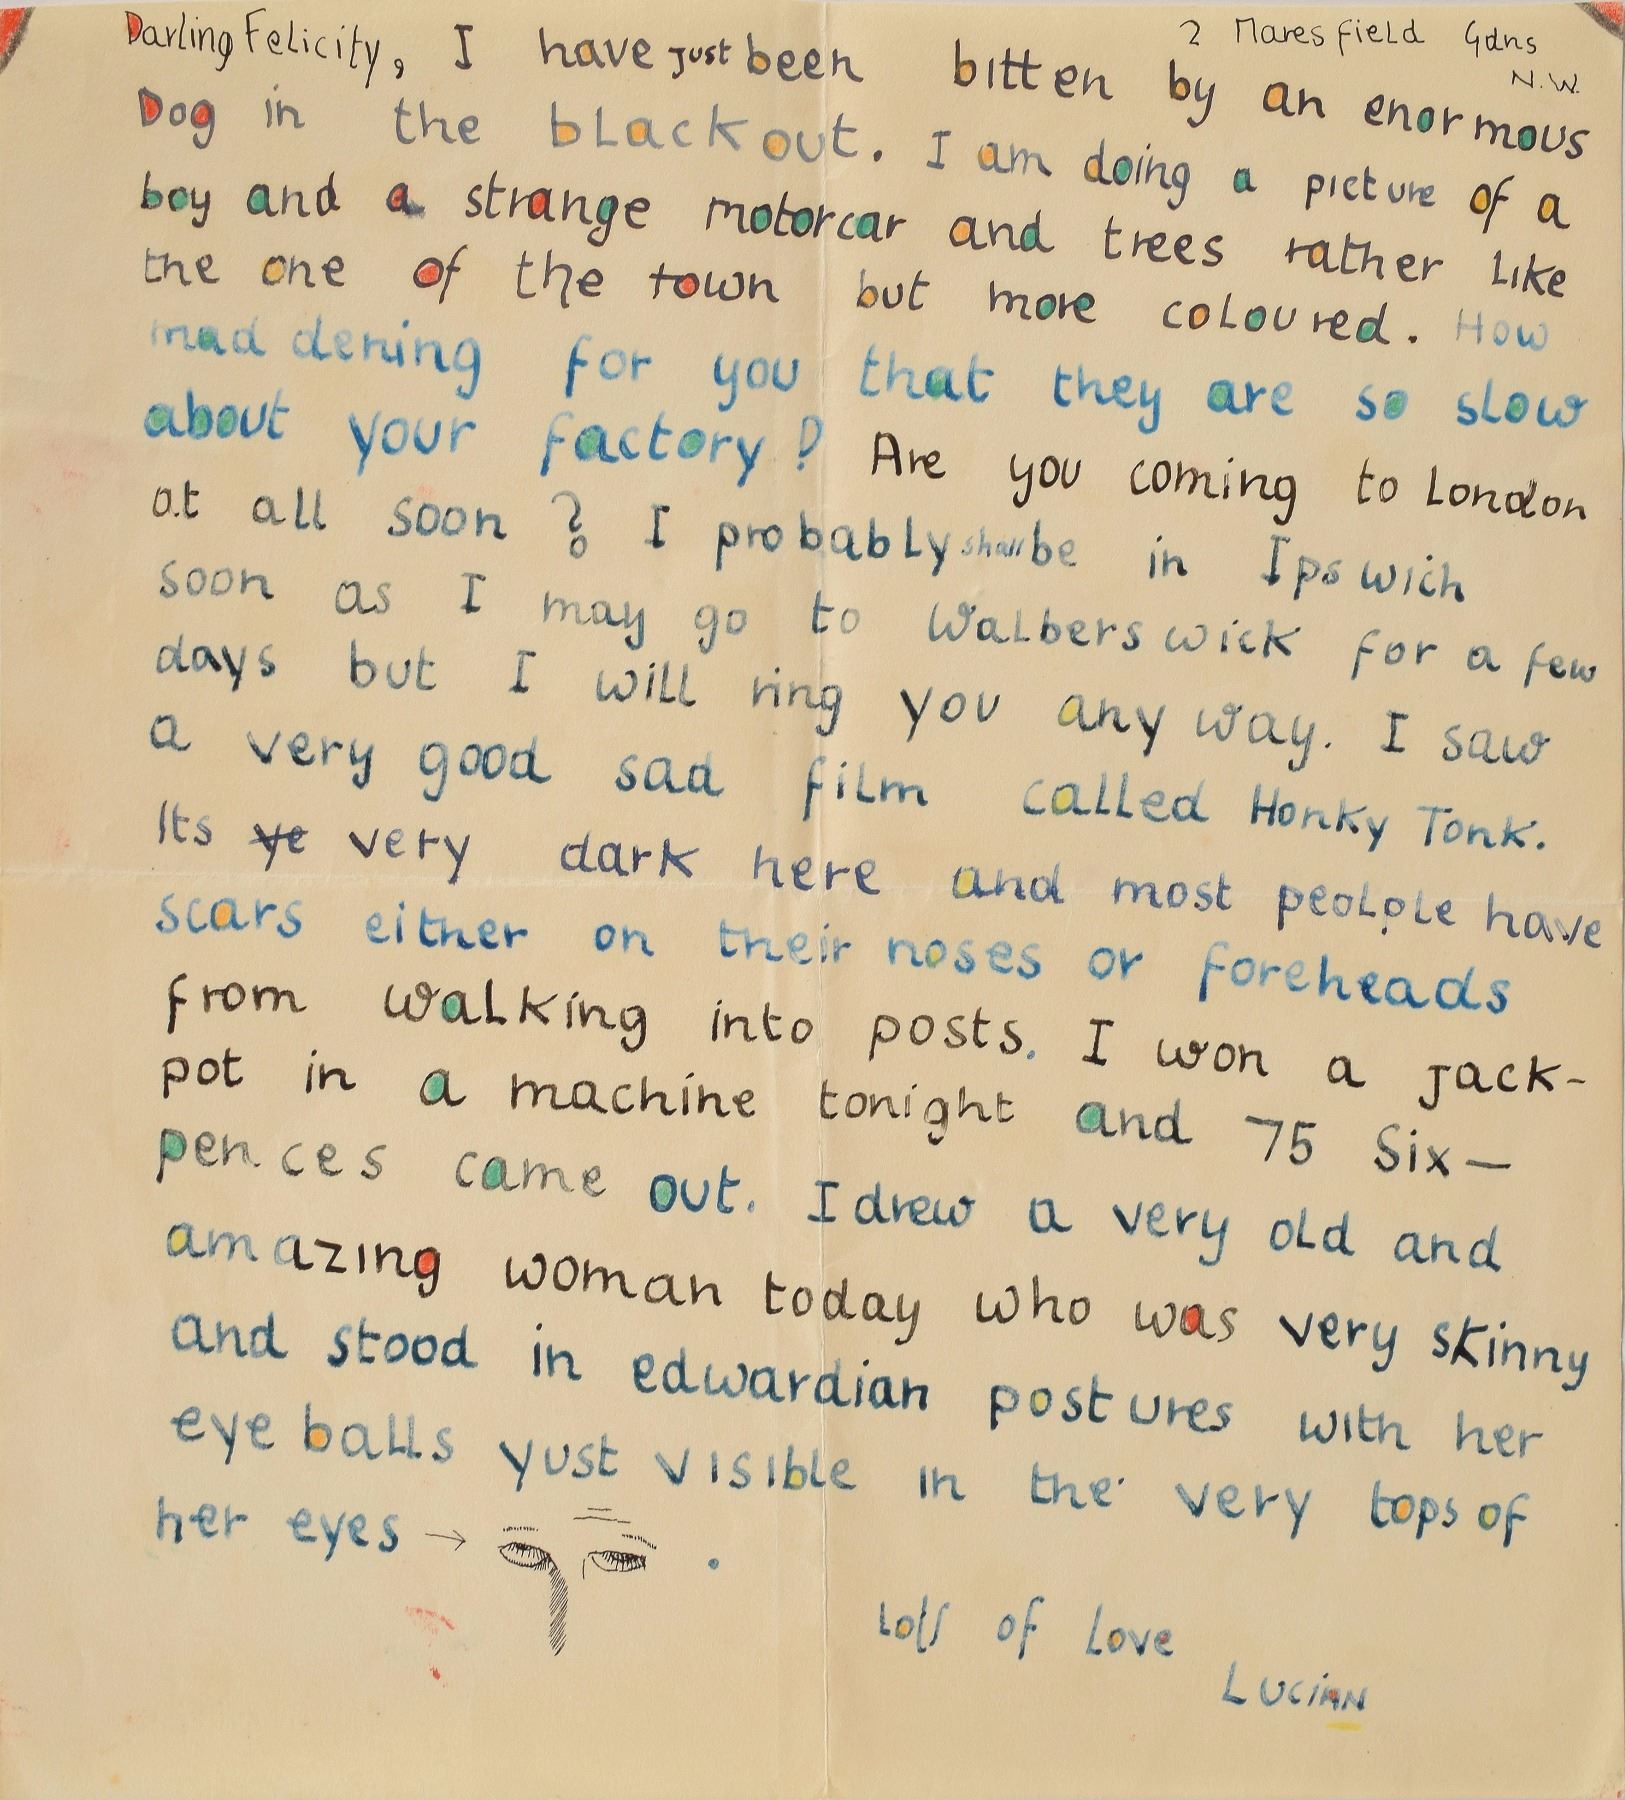 2 Maresfield Gdns
N.W.
Darling Felicity, I have just been bitten by an enormous
Dog in the blackout. I am doing a picture of a
boy and a strange motorcar and trees rather like
the one of the town but more coloured. How
maddening for you that they are so slow
about your factory? Are you coming to London
at all soon? I probably shall be in Ipswich
soon as I may go to Walberswick for a few
days but I will ring you any way. I saw
a very good sad film called Honky Tonk.
Its ye very dark here and most peolple have
scars either on their noses or foreheads
from walking into posts. I won a Jack-
pot in a machine tonight and 75 Six-
pences came out. I drew a very old and
amazing woman today who was very skinny
and stood in edwardian postures with her
eye balls yust visible in the very tops of
her eyes → .
Lots of Love
Lucian